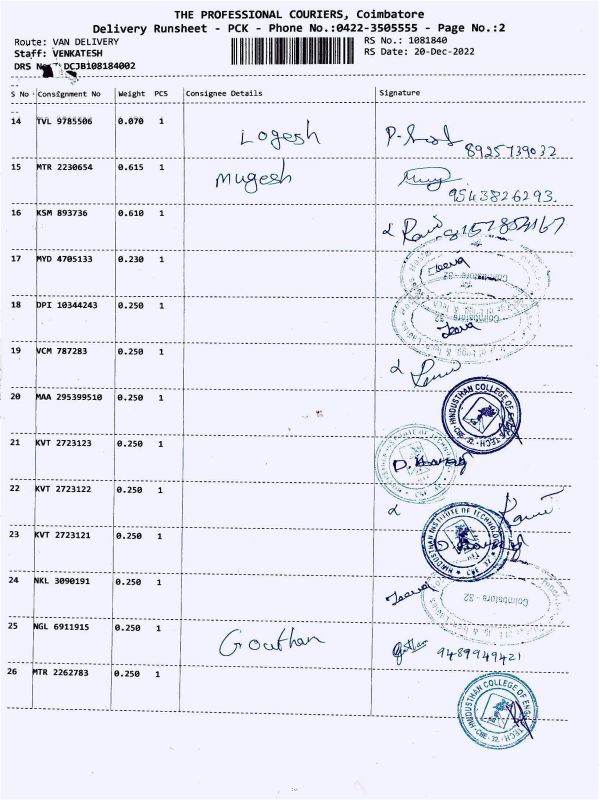 THE PROFESSIONAL COURIERS, Coimbatore
Delivery Runsheet - PCK - Phone No.:0422-3505555 - Page No.:2
Route: VAN DELIVERY
RS No.: 1081840
Staff: VENKATESH
RS Date: 20-Dec-2022
DRS DCJB108184002
S No Consignment No Weight PCS Consignee Details Signature
14 TVL 9785506 0.070 1 Logesh
8925739032
15 MTR 2230654 0.615 1 Mugesh
9543826293.
16 KSM 893736 0.610 1
17 MYD 4705133 0.230 1 Jeeva
Coimbatore - 32
18 DPI 10344243 0.250 1 Jeeva
Coimbatore 32
19 VCM 787283 0.250 1
20 MAA 295399510 0.250 1 HINDUSTHAN COLLEGE OF ENGG & TECH * CBE-32
21 KVT 2723123 0.250 1
22 KVT 2723122 0.250 1
23 KVT 2723121 0.250 1 HINDUSTHAN INSTITUTE OF TECHNOLOGY
24 NKL 3090191 0.250 1 Jeeva
Coimbatore - 32
25 NGL 6911915 0.250 1 Gouthan 9489949421
26 MTR 2262783 0.250 1 HINDUSTHAN COLLEGE OF ENGG TECH * CBE-32